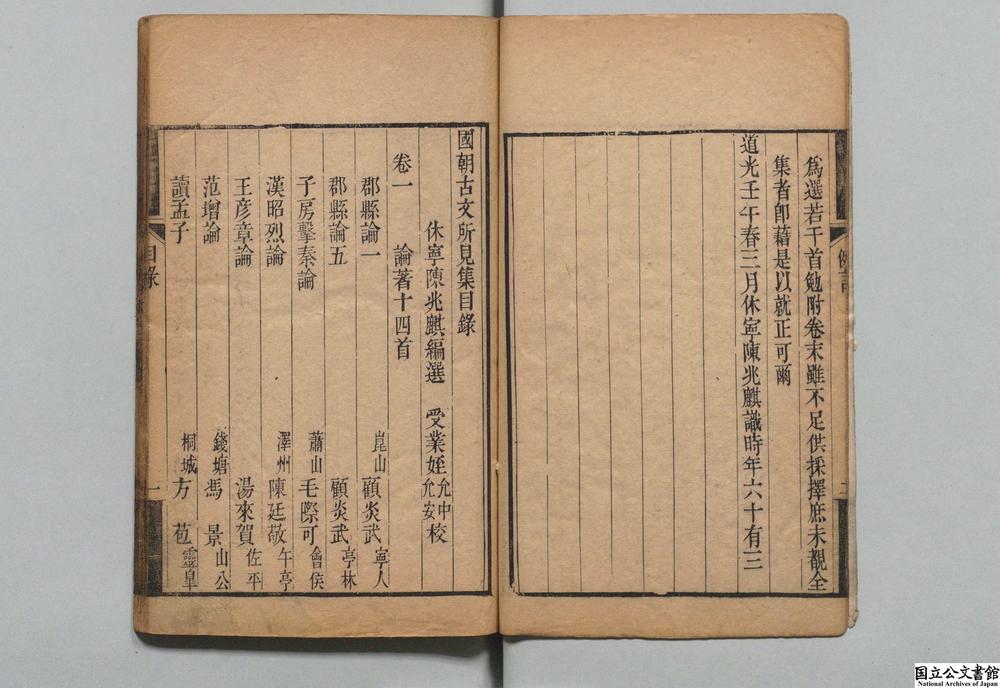 為選若干首勉附卷末雖不足供採擇庶未覩全
集者卽藉是以就正可爾
道光壬午春三月休寧陳兆麒識時年六十有三
例言
二
國朝古文所見集目錄
休寧陳兆麒編選　受業姪允中允安校
卷一　論著十四首
郡縣論一　崑山顧炎武寧人
郡縣論五　顧炎武亭林
子房擊秦論　蕭山毛際可會侯
漢昭烈論　澤州陳廷敬午亭
王彥章論　湯來賀佐平
范增論　錢塘馮景山公
讀孟子　桐城方苞靈皐
目錄
一
国立公文書館
National Archives of Japan